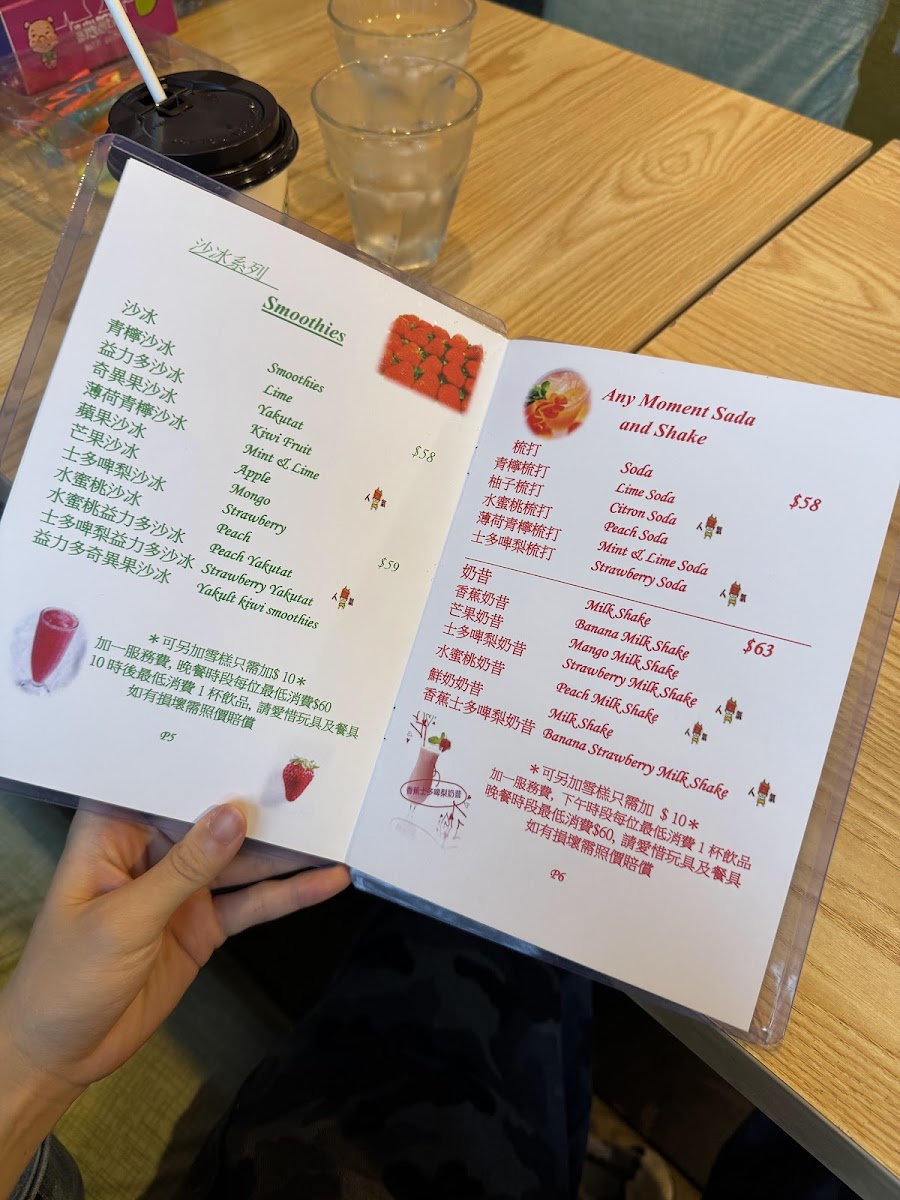 沙冰系列
Smoothies
沙冰
青檸沙冰
益力多沙冰
奇異果沙冰
薄荷青檸沙冰
蘋果沙冰
芒果沙冰
士多啤梨沙冰
水蜜桃沙冰
水蜜桃益力多沙冰
士多啤梨益力多沙冰
益力多奇異果沙冰
Smoothies
Lime
Yakutat
Kiwi Fruit
Mint & Lime
Apple
Mongo
Strawberry
Peach
Peach Yakutat
Strawberry Yakutat
Yakult kiwi smoothies
$58
人氣
$59
人氣
*可另加雪糕只需加$10*
加一服務費, 晚餐時段每位最低消費$60
10時後最低消費1杯飲品, 請愛惜玩具及餐具
如有損壞需照價賠償
P5
Any Moment Sada
and Shake
梳打
青檸梳打
柚子梳打
水蜜桃梳打
薄荷青檸梳打
士多啤梨梳打
Soda
Lime Soda
Citron Soda
Peach Soda
Mint & Lime Soda
Strawberry Soda
$58
人氣
人氣
奶昔
香蕉奶昔
芒果奶昔
士多啤梨奶昔
水蜜桃奶昔
鮮奶奶昔
香蕉士多啤梨奶昔
Milk Shake
Banana Milk Shake
Mango Milk Shake
Strawberry Milk Shake
Peach Milk Shake
Milk Shake
Banana Strawberry Milk Shake
$63
人氣
人氣
人氣
香蕉士多啤梨奶昔
*可另加雪糕只需加 $10*
加一服務費, 下午時段每位最低消費1杯飲品
晚餐時段最低消費$60, 請愛惜玩具及餐具
如有損壞需照價賠償
P6